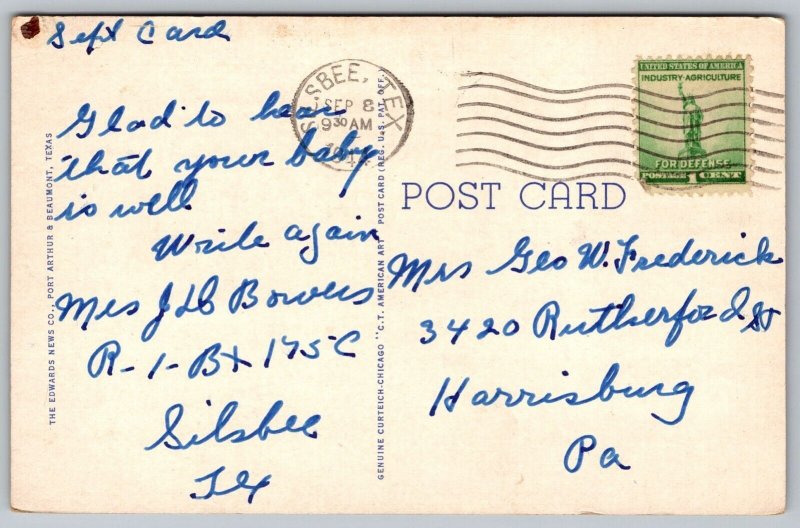 Sept Card
Glad to hear
that your baby
is well
Write again
Mrs J D Bowers
R-1-Bx 175C
Silsbee
Tex
THE EDWARDS NEWS CO., PORT ARTHUR & BEAUMONT, TEXAS
GENUINE CURTEICH-CHICAGO "C.T. AMERICAN ART" POST CARD (REG. U.S. PAT. OFF.)
SILSBEE, TEX
SEP 8
9 30 AM
UNITED STATES OF AMERICA
INDUSTRY·AGRICULTURE
FOR DEFENSE
POSTAGE 1 CENT
POST CARD
Mrs Geo W. Frederick
3420 Rutherford St
Harrisburg
Pa